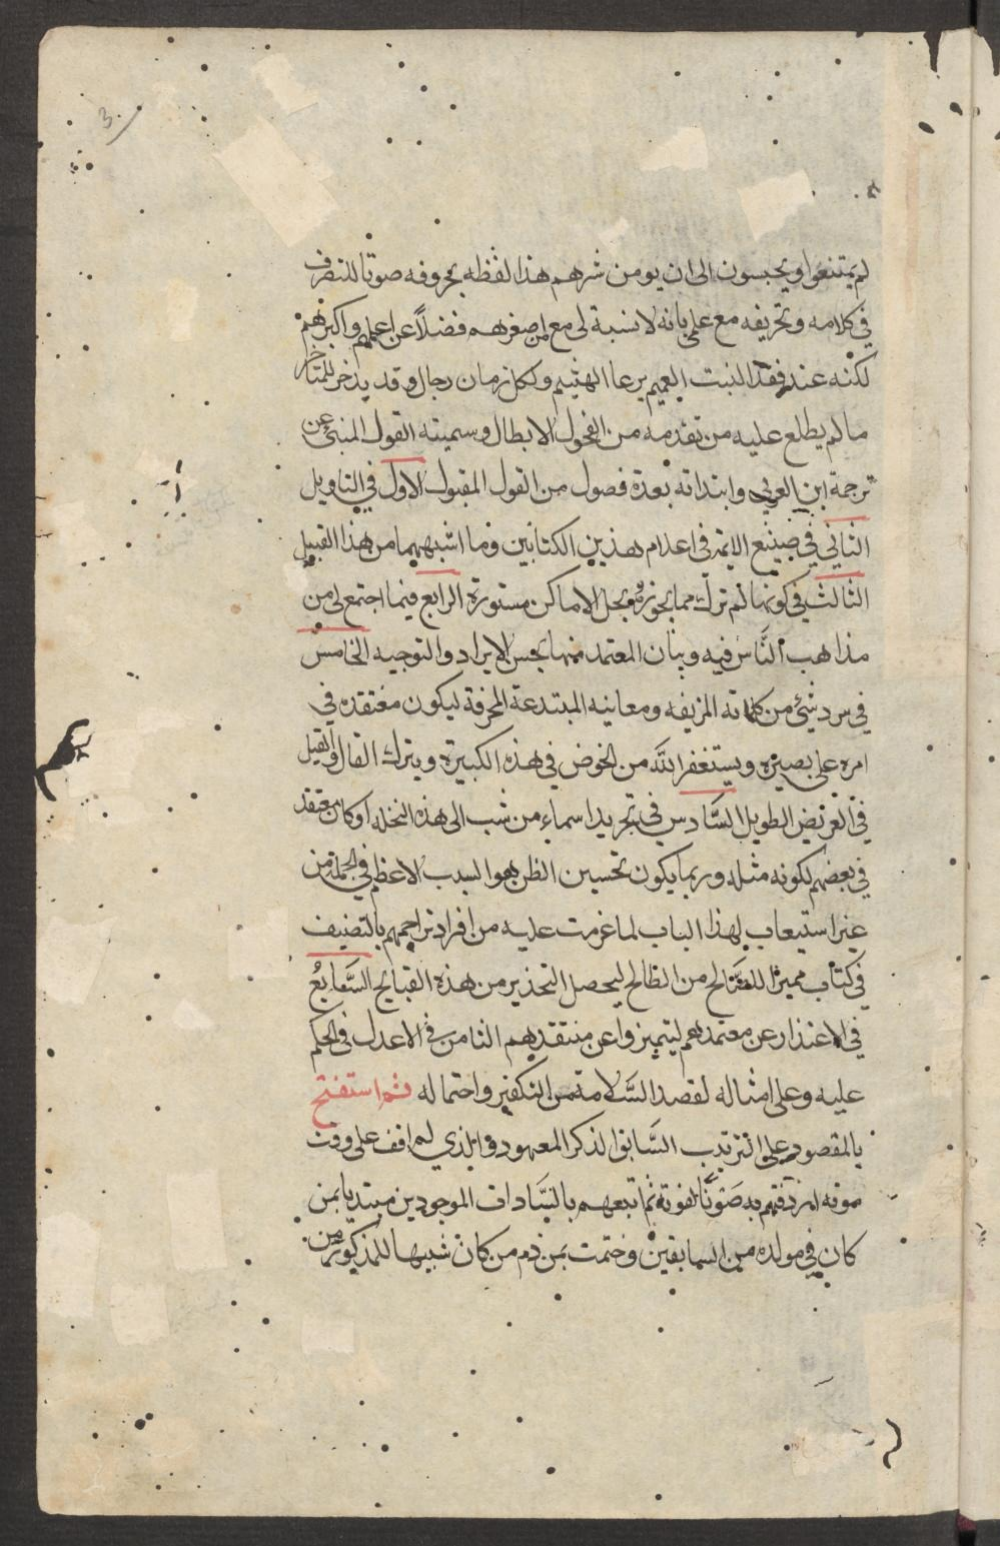 لم يمتنعوا ويحبسون الى ان يومن شرهم هذا لفظه بحروفه صونا للتصرف
في كلامه وتحريفه مع علمي بانه لا نسبة لي مع اصغرهم فضلاً عن اعلمهم واكبرهم
لكنه عند فقد النبت العميم يرعا الهشيم ولكل زمان رجال وقد يدخر للمتاخر
ما لم يطلع عليه من تقدمه من الفحول الابطال وسميته القول المنبئ عن
ترجمة ابن العربي وابتداته بعدة فصول من القول المقبول الاول في التاويل
الثاني في صنيع الايمة في اعدام هذين الكتابين وما اشبههما من هذا القبيل
الثالث في كونها لم تزل مما يحوزه وبجل الاماكن مستورة الرابع فيما اجتمع لي من
مذاهب الناس فيه وبيان المعتمد منها بحسن الايراد والتوجيه الخامس
في سرد شيء من كلماته المزيفه ومعانيه المبتدعة المحرفة ليكون معتقده في
امره على بصيرة ويستغفر الله من الخوض في هذه الكبيرة ويترك القال والقيل
في العريض الطويل السادس في تجريد اسماء من نسب الى هذه النحله او كان معتقد
في بعضهم لكونه مثله وربما يكون تحسين الظن هو السبب الاعظم في الجملة من
غير استيعاب لهذا الباب لما عزمت عليه من افراد تراجمهم بالتصنيف
في كتاب مميزا للصالح من الطالح ليحصل التحذير من هذه القبايح السابع
في الاعتذار عن معتمدهم ليتميزوا عن منتقديهم الثامن في الاعدل في الحكم
عليه وعلى امثاله لقصد السلامة من التكفير واحتماله فثم استفتح
بالمقصود على الترتيب السابق الذكر المعهود والذي لم اقف على وقت
موته اردفتهم به صونا لفوته ثم اتبعهم بالسادات الموجودين مبتديا بمن
كان في مولده من السابقين وختمت بمن ذم من كان شبيها للمذكور من